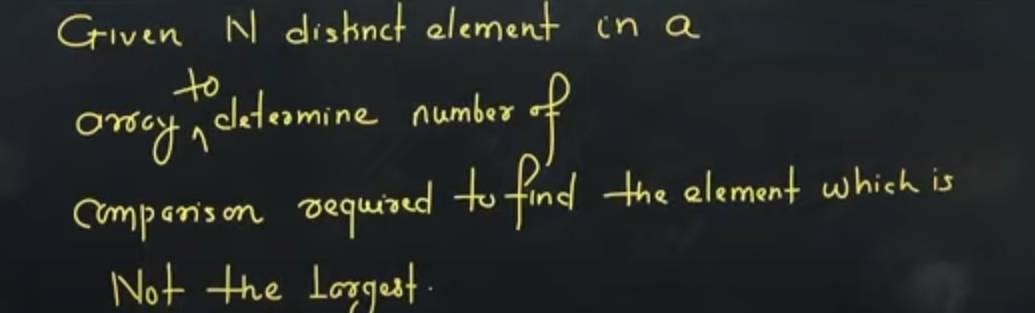 Given N distinct element in a
array to determine number of
comparison required to find the element which is
Not the Largest.